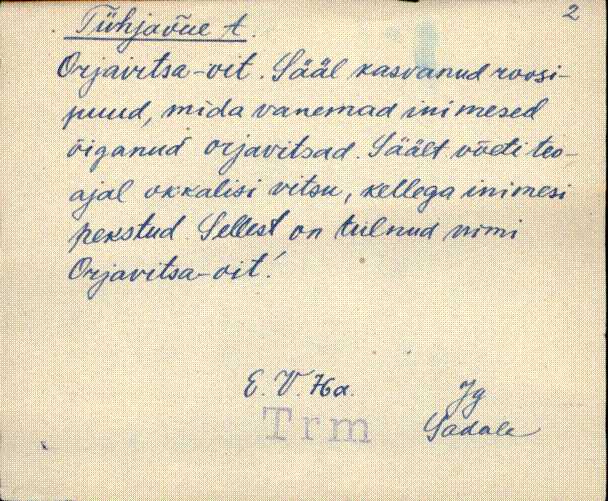 2
Tühjaõue t.
Orjavitsa-oit. Sääl kasvanud roosi-
puud, mida vanemad inimesed
õiganud orjavitsad. Säält võeti teo-
ajal okkalisi vitsu, kellega inimesi
pekstud. Sellest on tulnud nimi
Orjavitsa-oit!
E. V. Ha. Jg
Trm Sadala